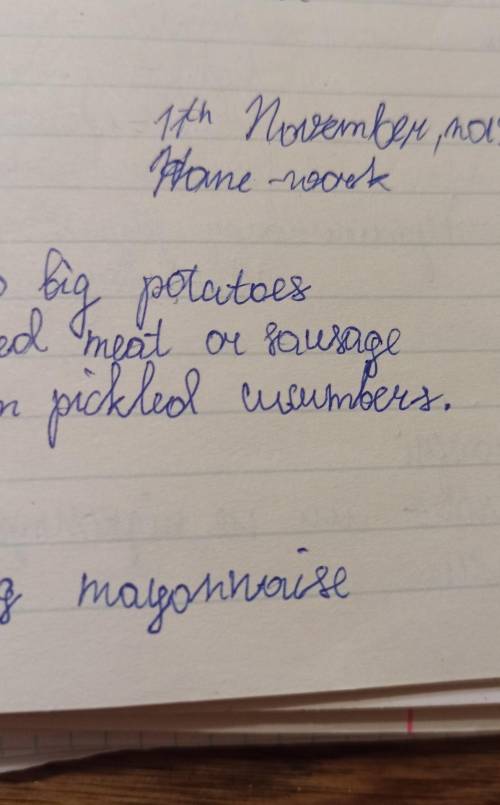 11th November,
Home-work
big potatoes
ed meat or sausage
n pickled cucumbers.
g mayonnaise